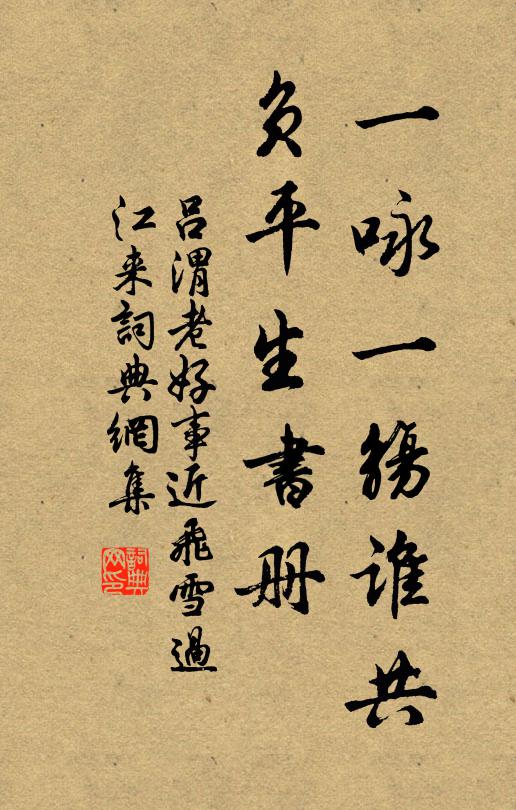 一咏一觴谁共
负平生書册
吕渭老好事近飛雪過
江来詞典網集
詞典
网印